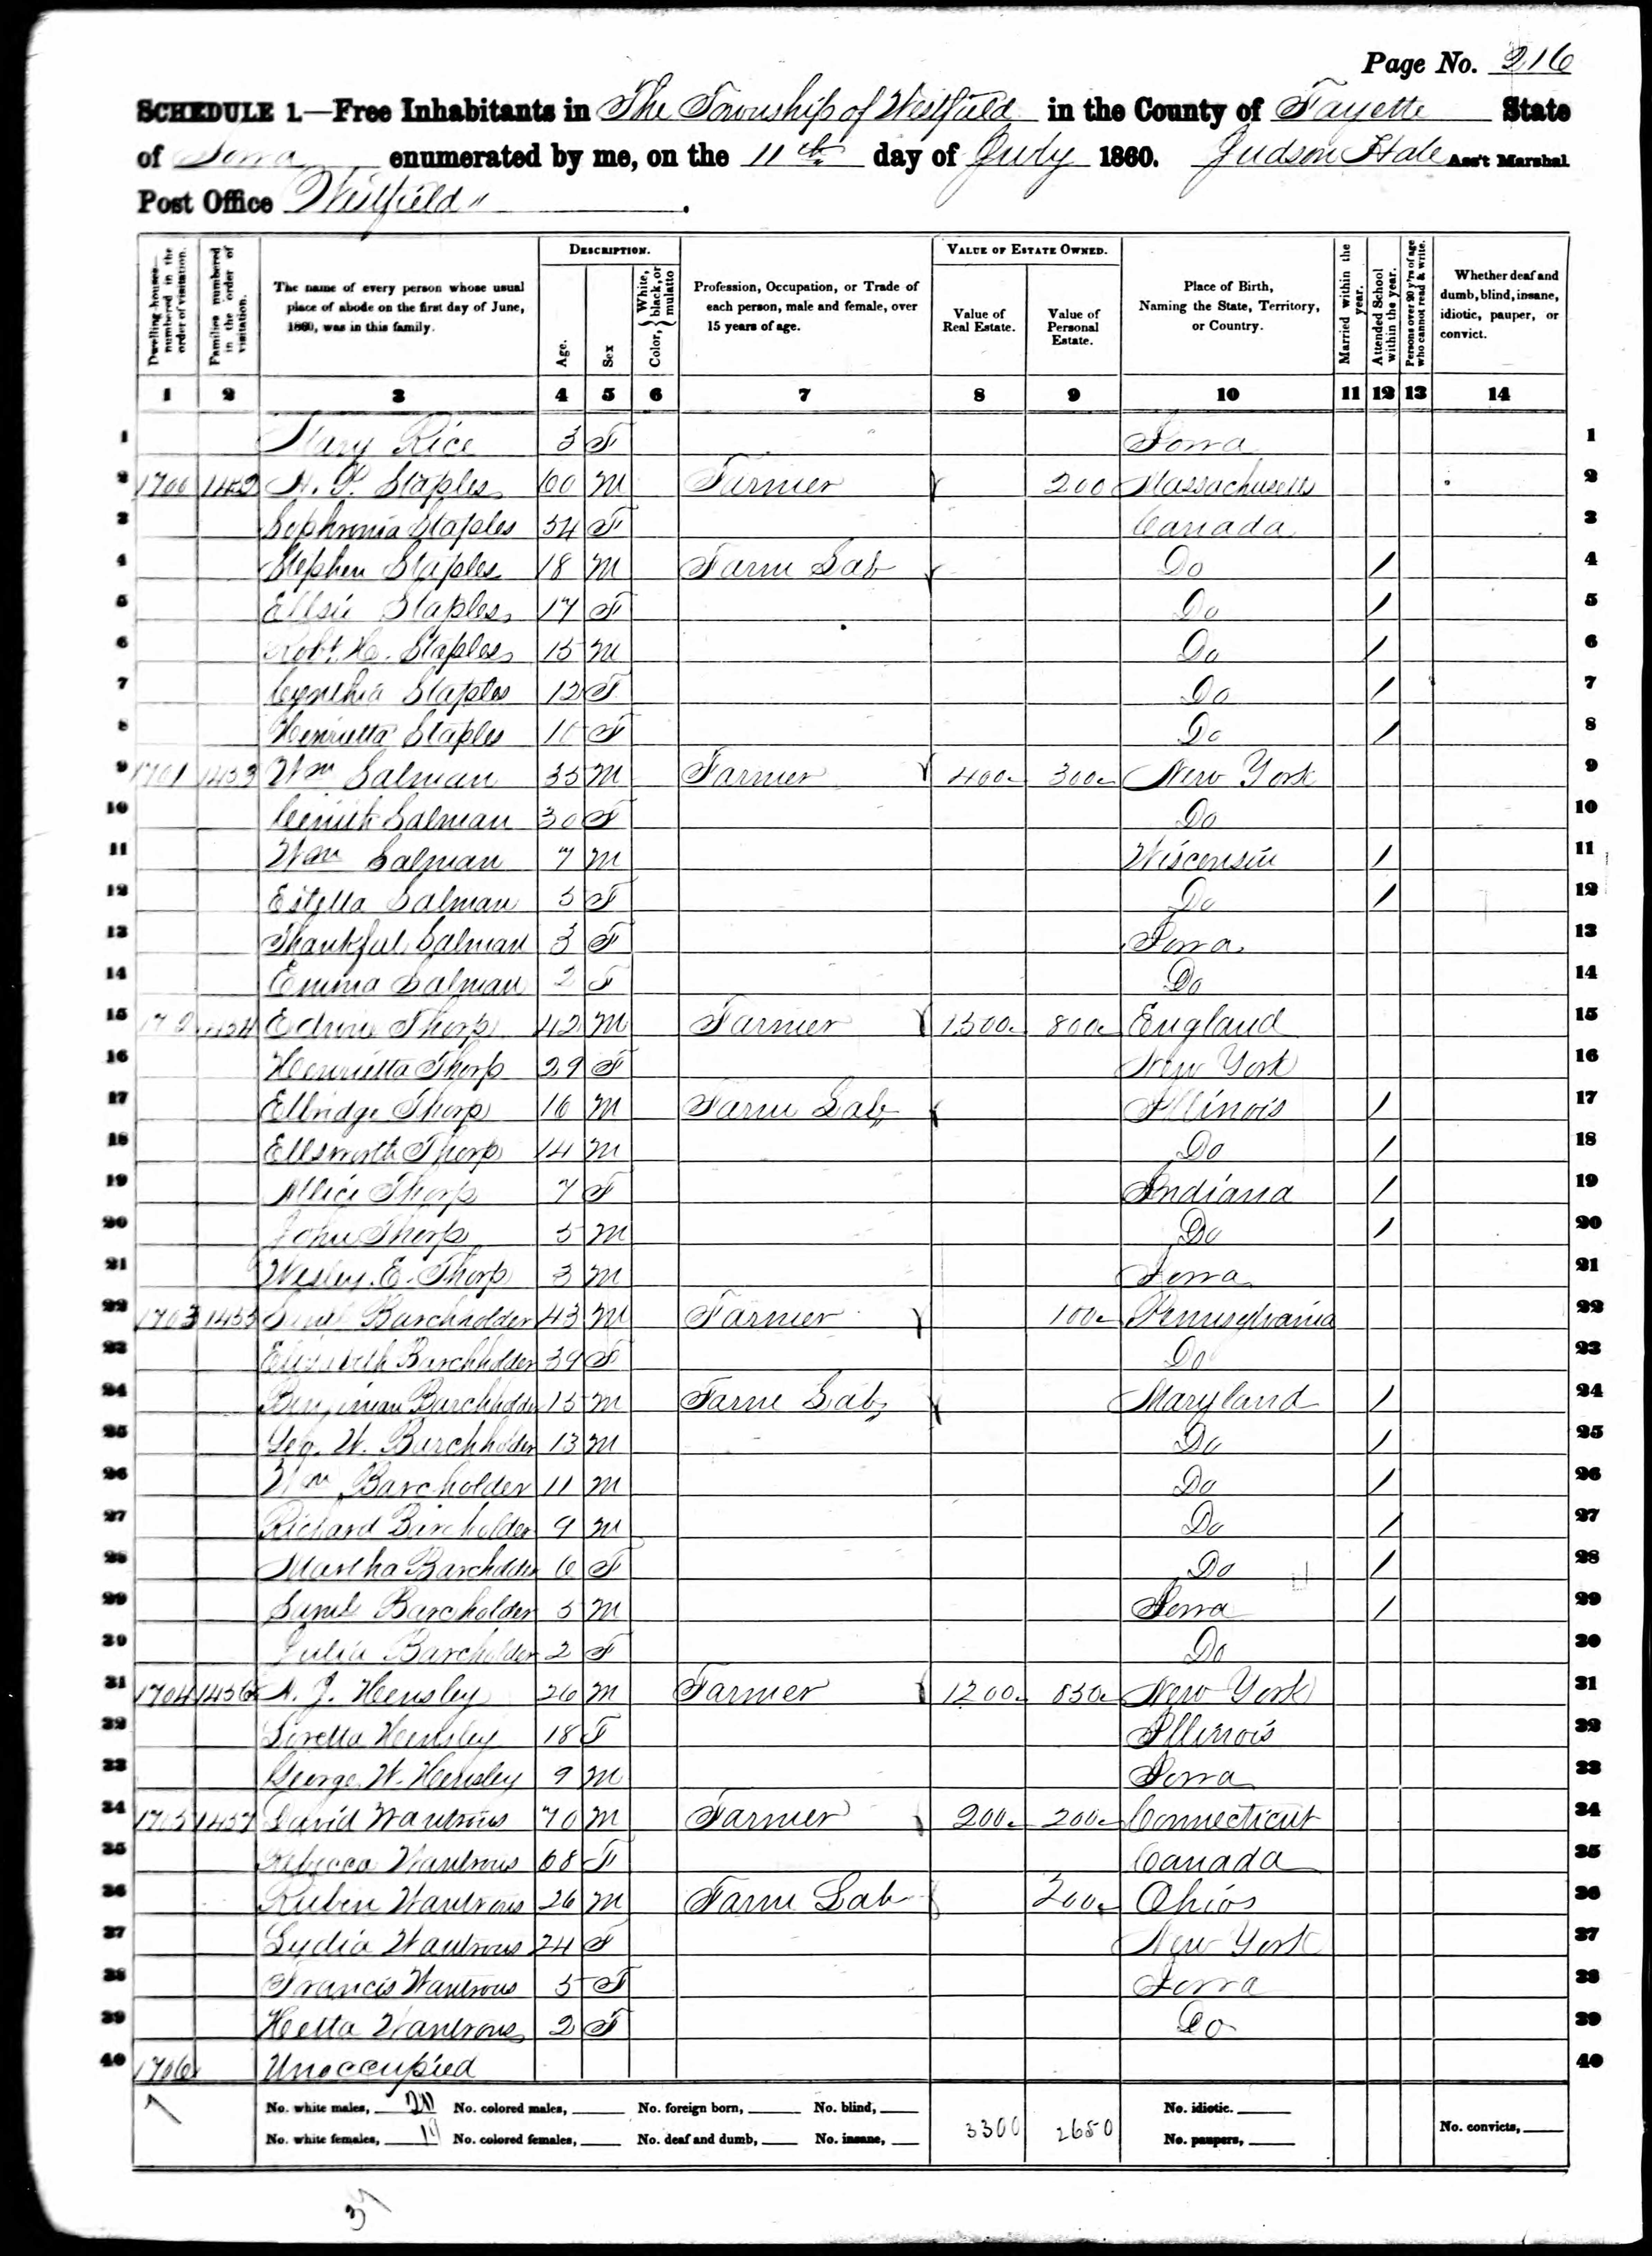 Page No. 216
SCHEDULE 1.—Free Inhabitants in The Township of Westfield in the County of Fayette State
of Iowa enumerated by me, on the 11th day of July 1860. Judson Hale Ass't Marshal
Post Office Westfield "
Dwelling-houses—numbered in the order of visitation.
Families numbered in the order of visitation.
The name of every person whose usual place of abode on the first day of June, 1860, was in this family.
DESCRIPTION.
Age.
Sex
Color, { White, black, or mulatto
Profession, Occupation, or Trade of each person, male and female, over 15 years of age.
VALUE OF ESTATE OWNED.
Value of Real Estate.
Value of Personal Estate.
Place of Birth, Naming the State, Territory, or Country.
Married within the year.
Attended School within the year.
Persons over 20 y'rs of age who cannot read & write.
Whether deaf and dumb, blind, insane, idiotic, pauper, or convict.
1 2 3 4 5 6 7 8 9 10 11 12 13 14
1 Mary Rice 3 F Iowa 1
2 1700 1452 Staples 60 M Farmer 200 Massachusetts 2
3 Sophronia Staples 54 F Canada 3
4 Stephen Staples 18 M Farm Lab Do / 4
5 Ellsie Staples 17 F Do / 5
6 Robt. H. Staples 15 M Do / 6
7 Cynthia Staples 12 F Do / 7
8 Henrietta Staples 10 F Do / 8
9 1701 1453 Wm Salman 35 M Farmer 400 300 New York 9
10 Salman 30 F Do 10
11 Wm Salman 7 M Wisconsin / 11
12 Estella Salman 5 F Do / 12
13 Thankful Salman 3 F Iowa 13
14 Emma Salman 2 F Do 14
15 1702 1454 Edwin Thorp 42 M Farmer 1300 800 England 15
16 Henrietta Thorp 29 F New York 16
17 Elbridge Thorp 16 M Farm Lab Illinois / 17
18 Ellsworth Thorp 14 M Do / 18
19 Allice Thorp 7 F Indiana / 19
20 John Thorp 5 M Do / 20
21 Wesley. E. Thorp 3 M Iowa 21
22 1703 1455 Saml Barchholder 43 M Farmer 100 Pennsylvania 22
23 Elizabeth Barchholder 39 F Do 23
24 Benjiman Barchholder 15 M Farm Lab Maryland / 24
25 Geo. W. Barchholder 13 M Do / 25
26 Wm Barcholder 11 M Do / 26
27 Richard Barcholder 9 M Do / 27
28 Martha Barcholder 6 F Do / 28
29 Saml Barcholder 5 M Iowa / 29
30 Julia Barcholder 2 F Do 30
31 1704 1456 A. J. Hensley 26 M Farmer 1200 850 New York 31
32 Loretta Hensley 18 F Illinois 32
33 George W. Hensley 9 M Iowa 33
34 1705 1457 David Wautrous 70 M Farmer 200 200 Connecticut 34
35 Rebecca Wautrous 68 F Canada 35
36 Rubin Wautrous 26 M Farm Lab 200 Ohio 36
37 Lydia Wautrous 24 F New York 37
38 Francis Wautrous 5 F Iowa 38
39 Hetta Wautrous 2 F Do 39
40 1706 Unoccupied 40
7 No. white males, 20 No. colored males, No. foreign born, No. blind, 3300 2650 No. idiotic. No. convicts,
No. white females, 19 No. colored females, No. deaf and dumb, No. insane, No. paupers,
39